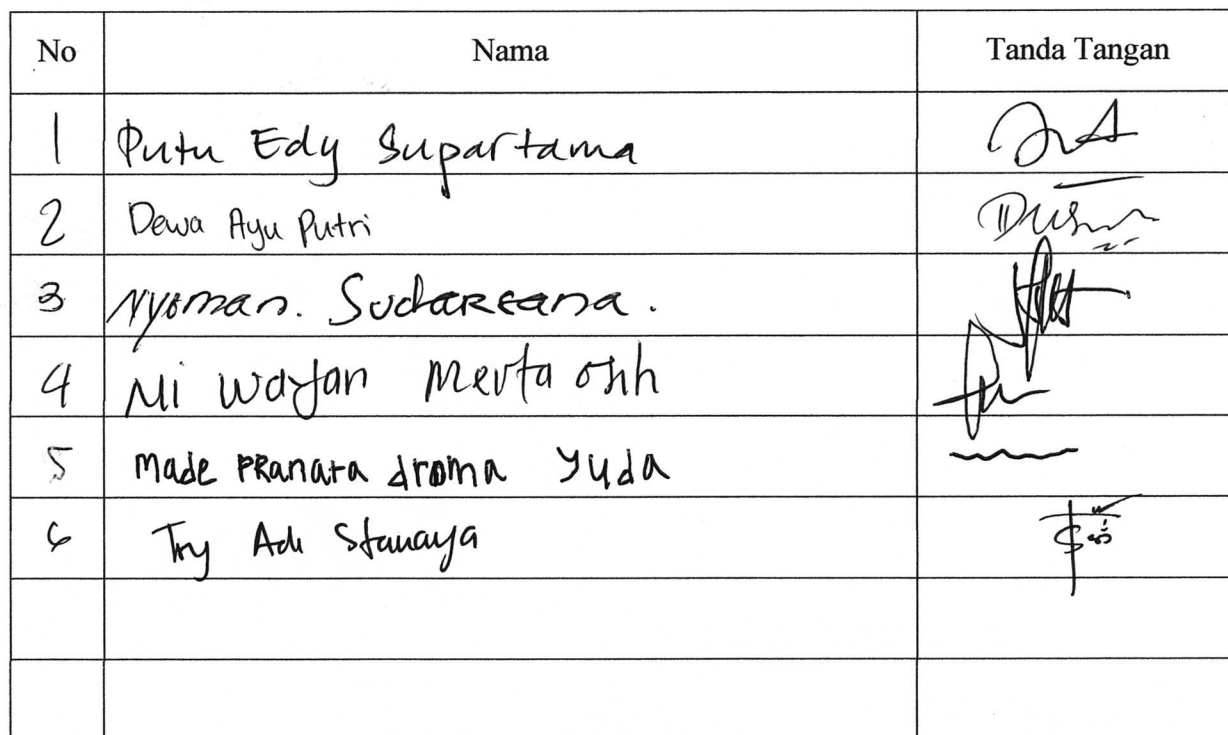 No Nama Tanda Tangan
1 Putu Edy Supartama
2 Dewa Ayu Putri
3 Nyoman. Sudareana.
4 Ni Wayan Merta
5 Made PRanata droma yuda
6 Try Adi